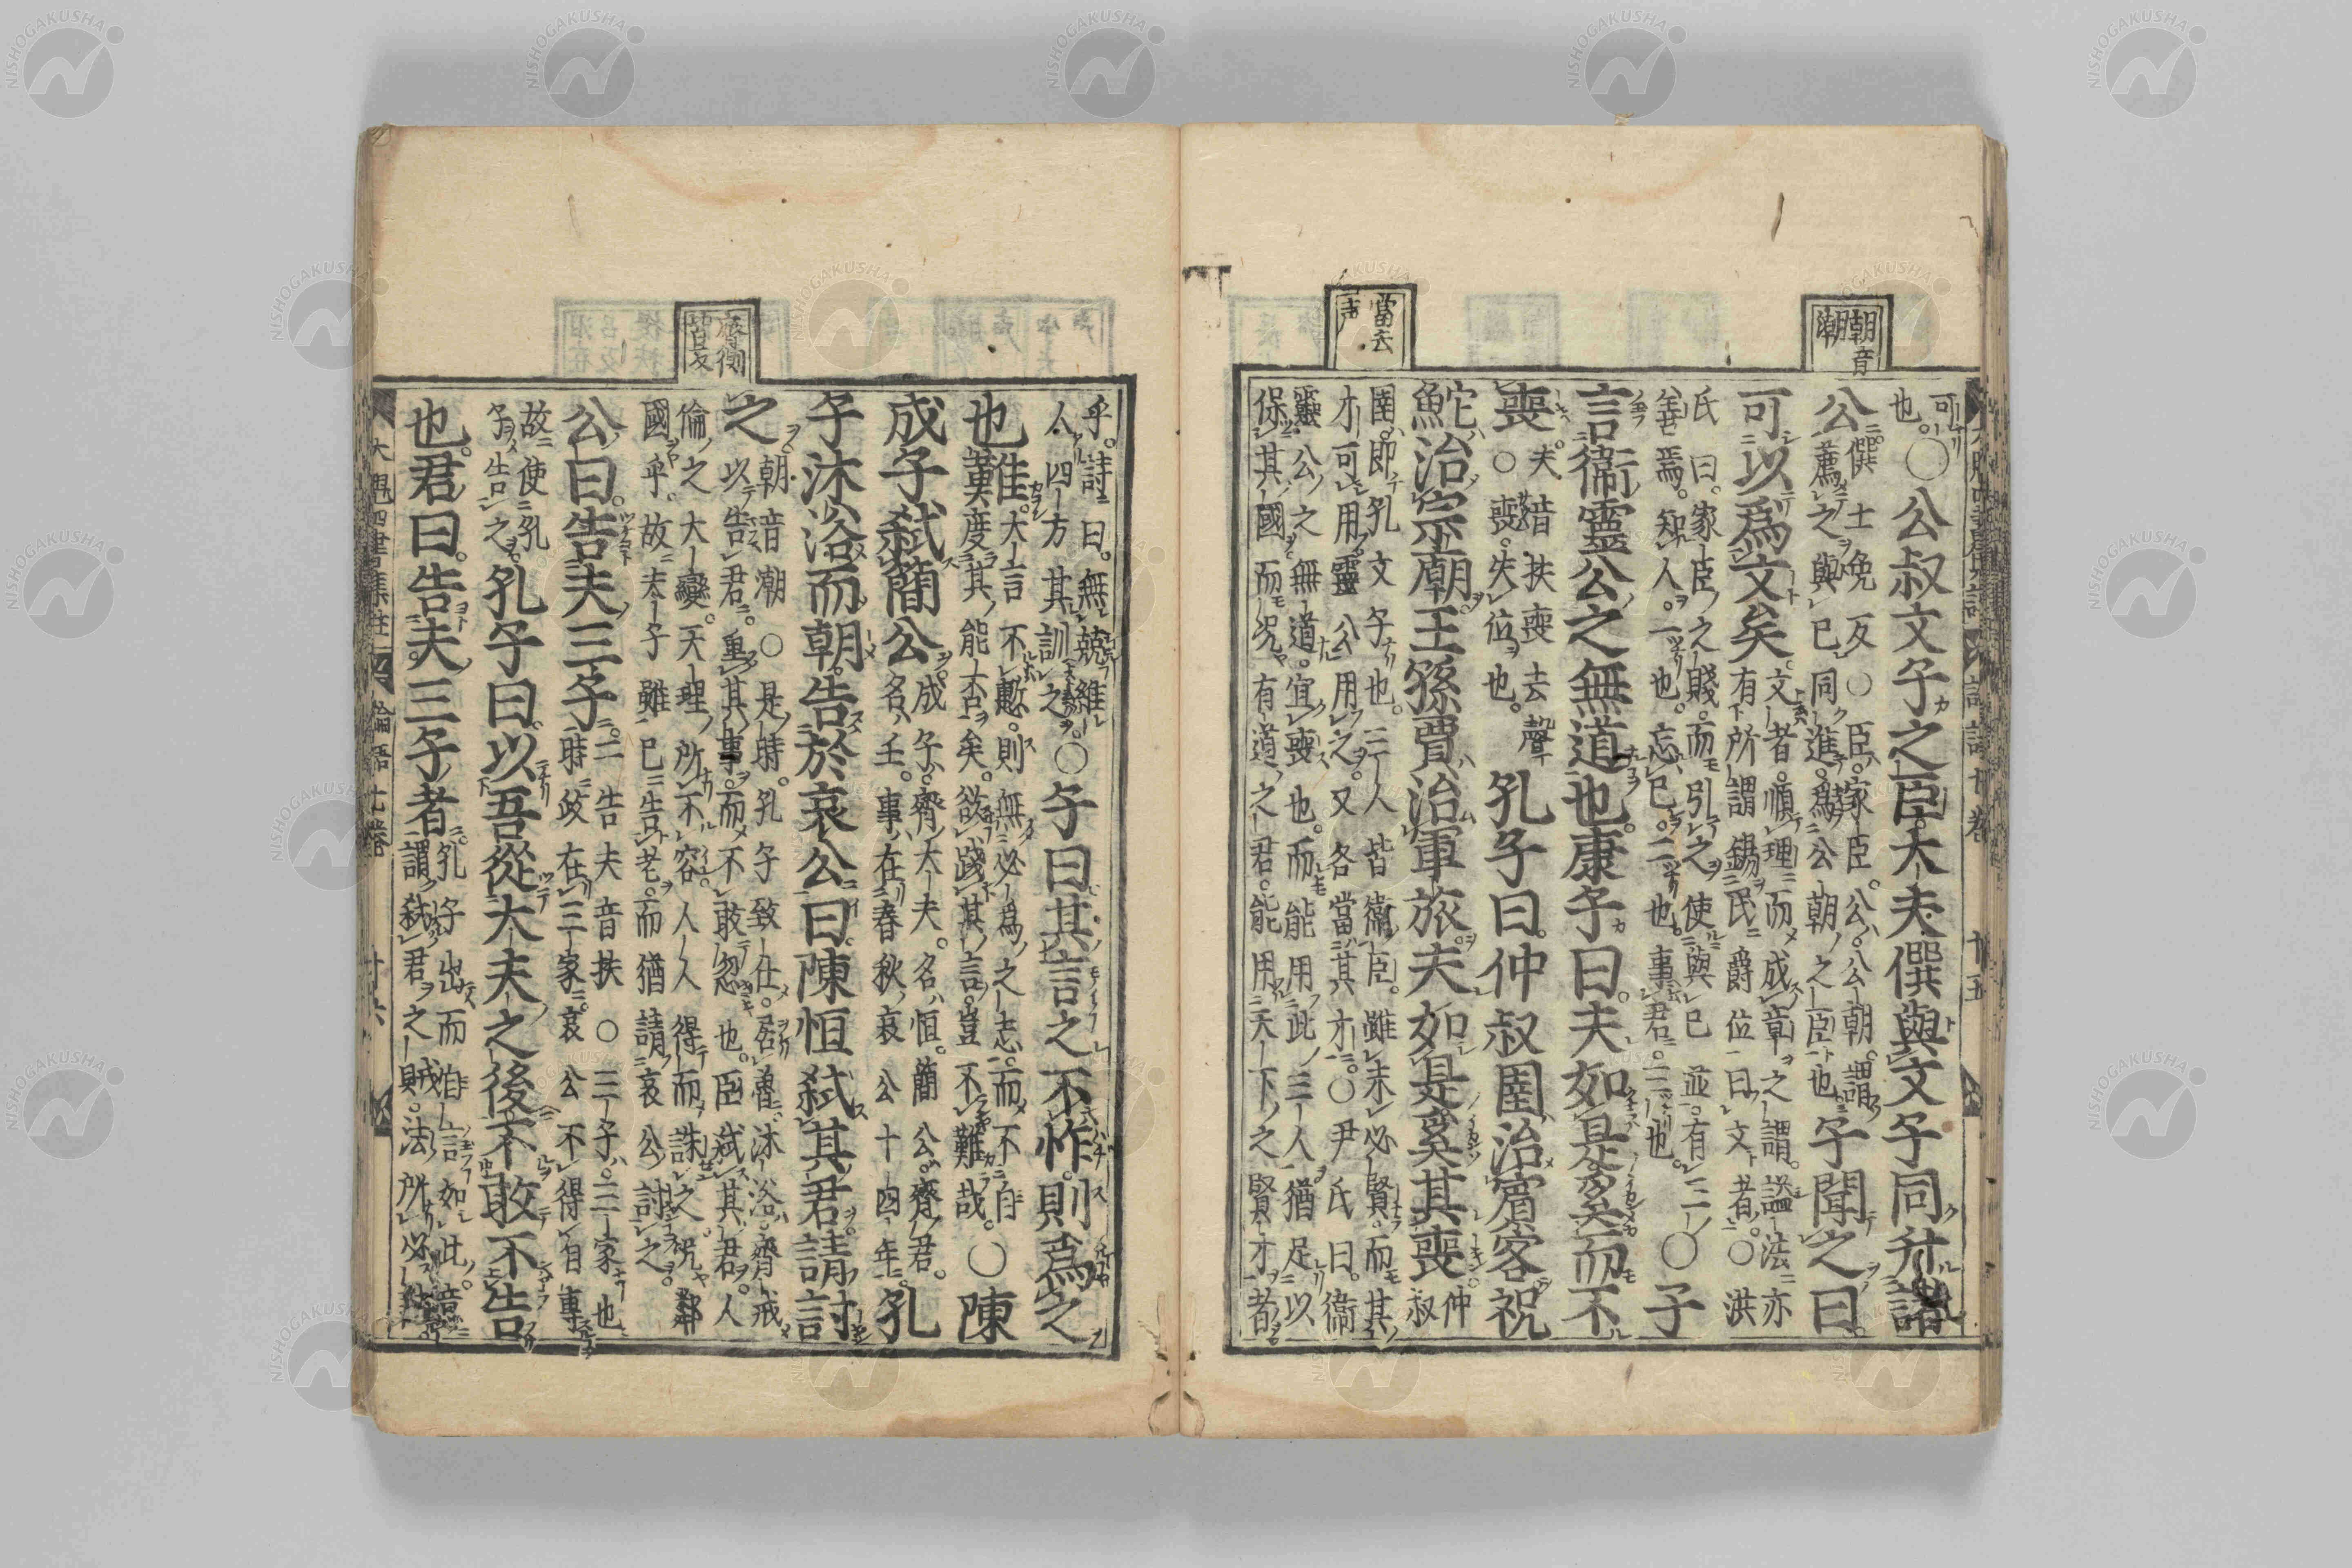 朝音
潮
當去
声
可也
也。○公叔文子之臣大夫僎與文子同升諸
公僎士免反○臣家臣。公公朝。謂
薦之與己同進爲公朝之臣也。子聞之曰。
可以爲文矣。文者。順理而成章之謂。謚法亦
有所謂錫民爵位曰文者。○洪
氏曰。家臣之賤。而引之使與己並。有三
善焉。知人。一也。忘己。二也。事君。三也。○子
言衞靈公之無道也。康子曰。夫如是。奚而不
喪。夫音扶喪去聲
○喪。失位也。孔子曰。仲叔圉治賓客。祝
鮀治宗廟。王孫賈治軍旅。夫如是。奚其喪。仲
叔
圉。即孔文子也。三人皆衞臣。雖未必賢。而其
才可用。靈公用之。又各當其才。○尹氏曰。衞
靈公之無道。宜喪也。而能用此三人。猶足以
保其國。而況有道之君。能用天下之賢才者
乎。詩曰。無競維
人。四方其訓之。○子曰。其言之不怍。則爲之
也難。大言不慙。則無必爲之志。而不自
其度其能否矣。欲踐其言。豈不難哉。○陳
成子弑簡公。成子。齊大夫。名恒。簡公。齊君。
名壬。事在春秋哀公十四年。孔
子沐浴而朝。告於哀公曰。陳恒弑其君。請討
之。朝音潮○是時。孔子致仕。居魯。沐浴齊戒
以告君。重其事。而不敢忽也。臣弑其君。人
倫之大變。天理所不容。人人得而誅之。況鄰
國乎。故夫子雖已告老。而猶請哀公討之。
公曰。告夫三子。夫音扶○三子。三家也
時政在三家。哀公不得自專
故使孔
子告之。孔子曰。以吾從大夫之後。不敢不告
也。君曰。告夫三子者。孔子出而自言如此。意
謂弑君之賊。法所必